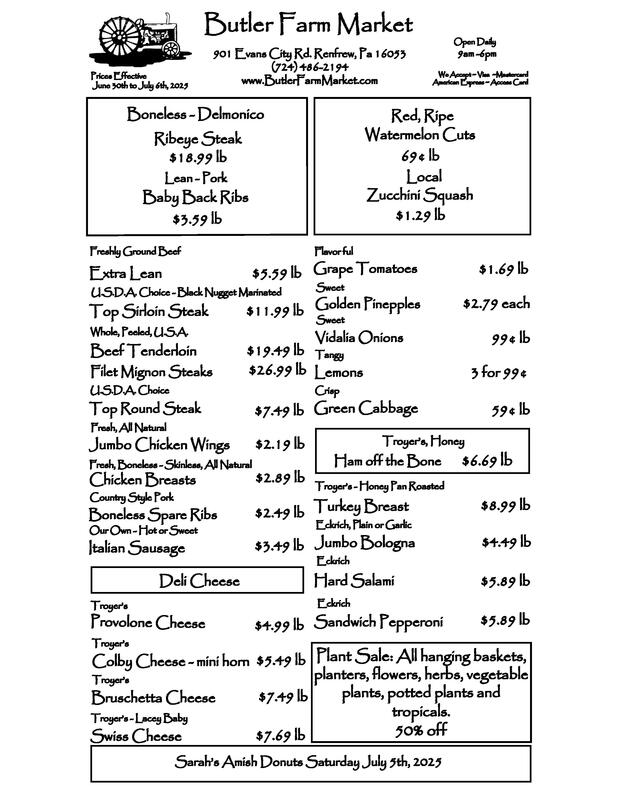 Butler Farm Market
901 Evans City Rd. Renfrew, Pa 16053
(724) 486-2194
www.ButlerFarmMarket.com
Open Daily
9am -6pm
Prices Effective
June 30th to July 6th, 2025
We Accept - Visa - Mastercard
American Express - Access Card
Boneless - Delmonico
Ribeye Steak
$18.99 lb
Lean - Pork
Baby Back Ribs
$3.59 lb
Red, Ripe
Watermelon Cuts
69¢ lb
Local
Zucchini Squash
$1.29 lb
Freshly Ground Beef
Extra Lean $5.59 lb
U.S.D.A. Choice - Black Nugget Marinated
Top Sirloin Steak $11.99 lb
Whole, Peeled, U.S.A.
Beef Tenderloin $19.49 lb
Filet Mignon Steaks $26.99 lb
U.S.D.A. Choice
Top Round Steak $7.49 lb
Fresh, All Natural
Jumbo Chicken Wings $2.19 lb
Fresh, Boneless - Skinless, All Natural
Chicken Breasts $2.89 lb
Country Style Pork
Boneless Spare Ribs $2.49 lb
Our Own - Hot or Sweet
Italian Sausage $3.49 lb
Deli Cheese
Troyer's
Provolone Cheese $4.99 lb
Troyer's
Colby Cheese - mini horn $5.49 lb
Troyer's
Bruschetta Cheese $7.49 lb
Troyer's - Lacey Baby
Swiss Cheese $7.69 lb
Flavorful
Grape Tomatoes $1.69 lb
Sweet
Golden Pinepples $2.79 each
Sweet
Vidalia Onions 99¢ lb
Tangy
Lemons 3 for 99¢
Crisp
Green Cabbage 59¢ lb
Troyer's, Honey
Ham off the Bone $6.69 lb
Troyer's - Honey Pan Roasted
Turkey Breast $8.99 lb
Eckrich, Plain or Garlic
Jumbo Bologna $4.49 lb
Eckrich
Hard Salami $5.89 lb
Eckrich
Sandwich Pepperoni $5.89 lb
Plant Sale: All hanging baskets,
planters, flowers, herbs, vegetable
plants, potted plants and
tropicals.
50% off
Sarah's Amish Donuts Saturday July 5th, 2025